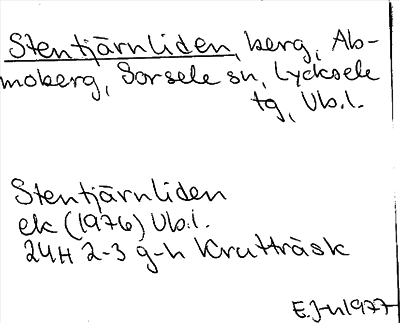 Stentjärnliden, berg, Ab-
moberg, Sorsele sn, Lycksele
tg, Vb.l.
Stentjärnliden
ek (1976) Vb.l.
24H 2-3 g-h Krutträsk
E.J-n 1977